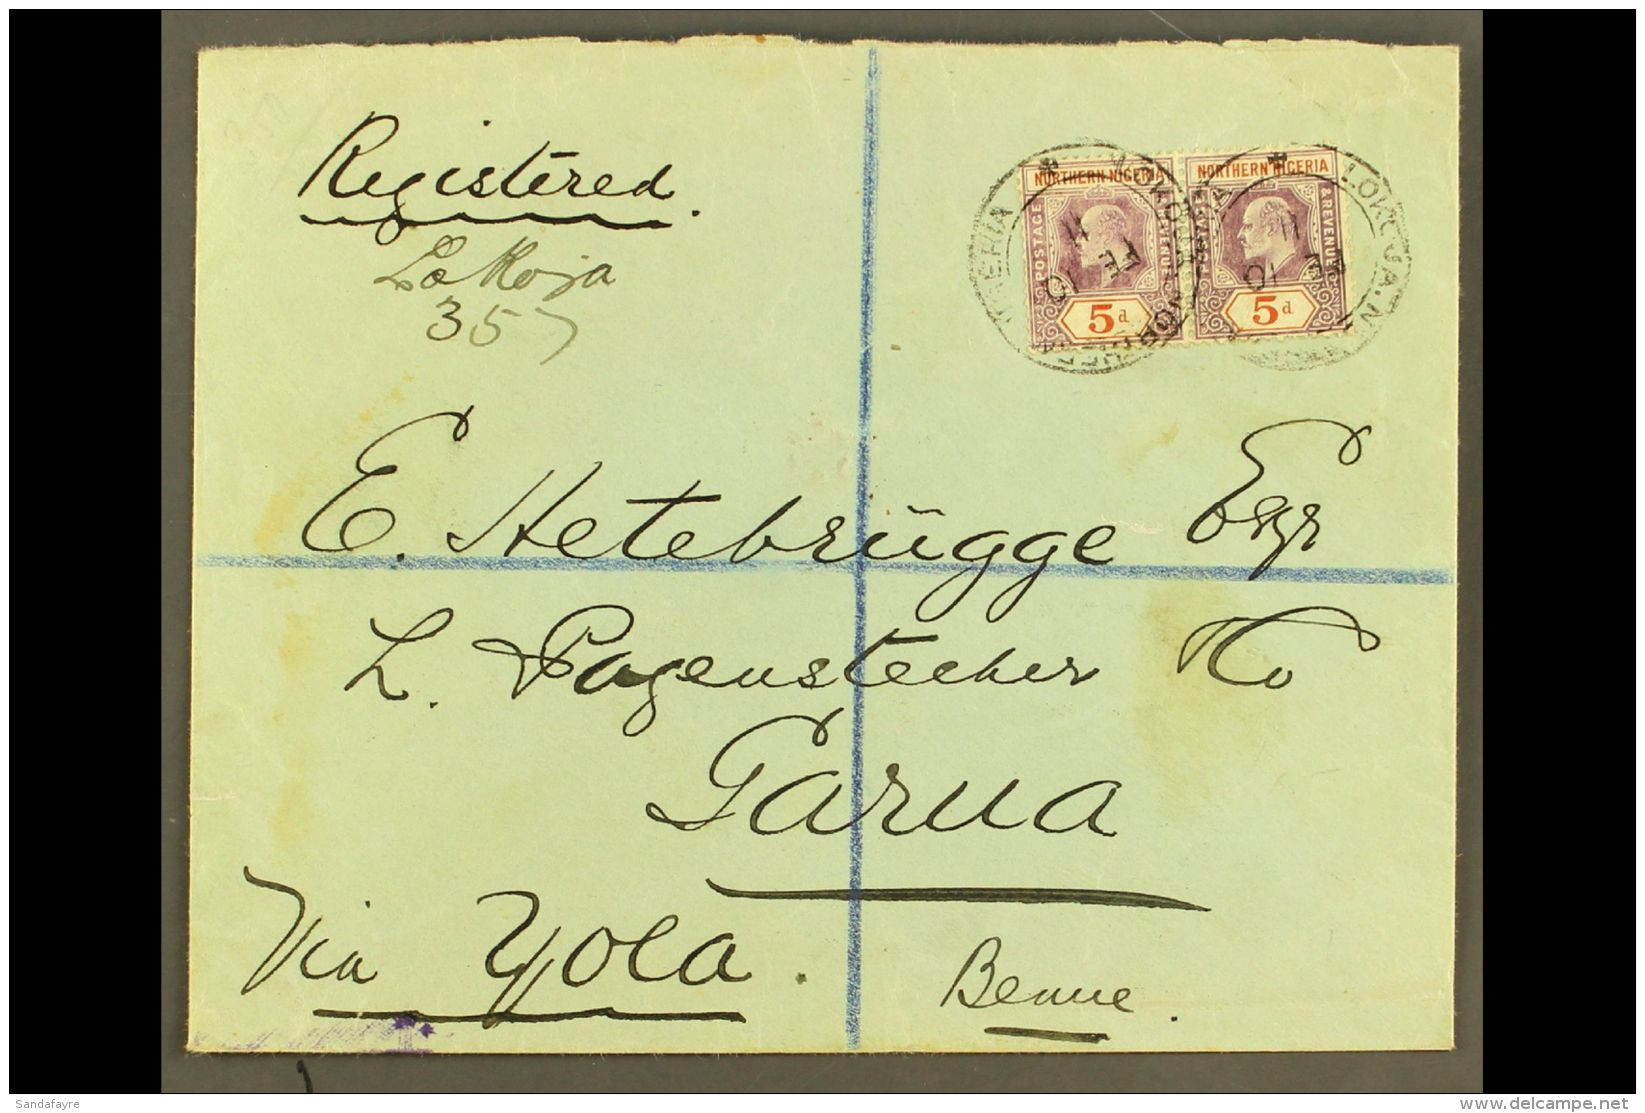 Registered.
Lokoja
357
NORTHERN NIGERIA
POSTAGE & REVENUE
5d
NORTHERN NIGERIA
& REVENUE
5d
LOKOJA. NIGERIA
11
FE
10
LOKOJA. N
11
FE
10
E. Hetebrügge Esqr
L. Pagenstecher & Co
Garua
Via Yola.
Benue.
Sandafayre
www.delcampe.net